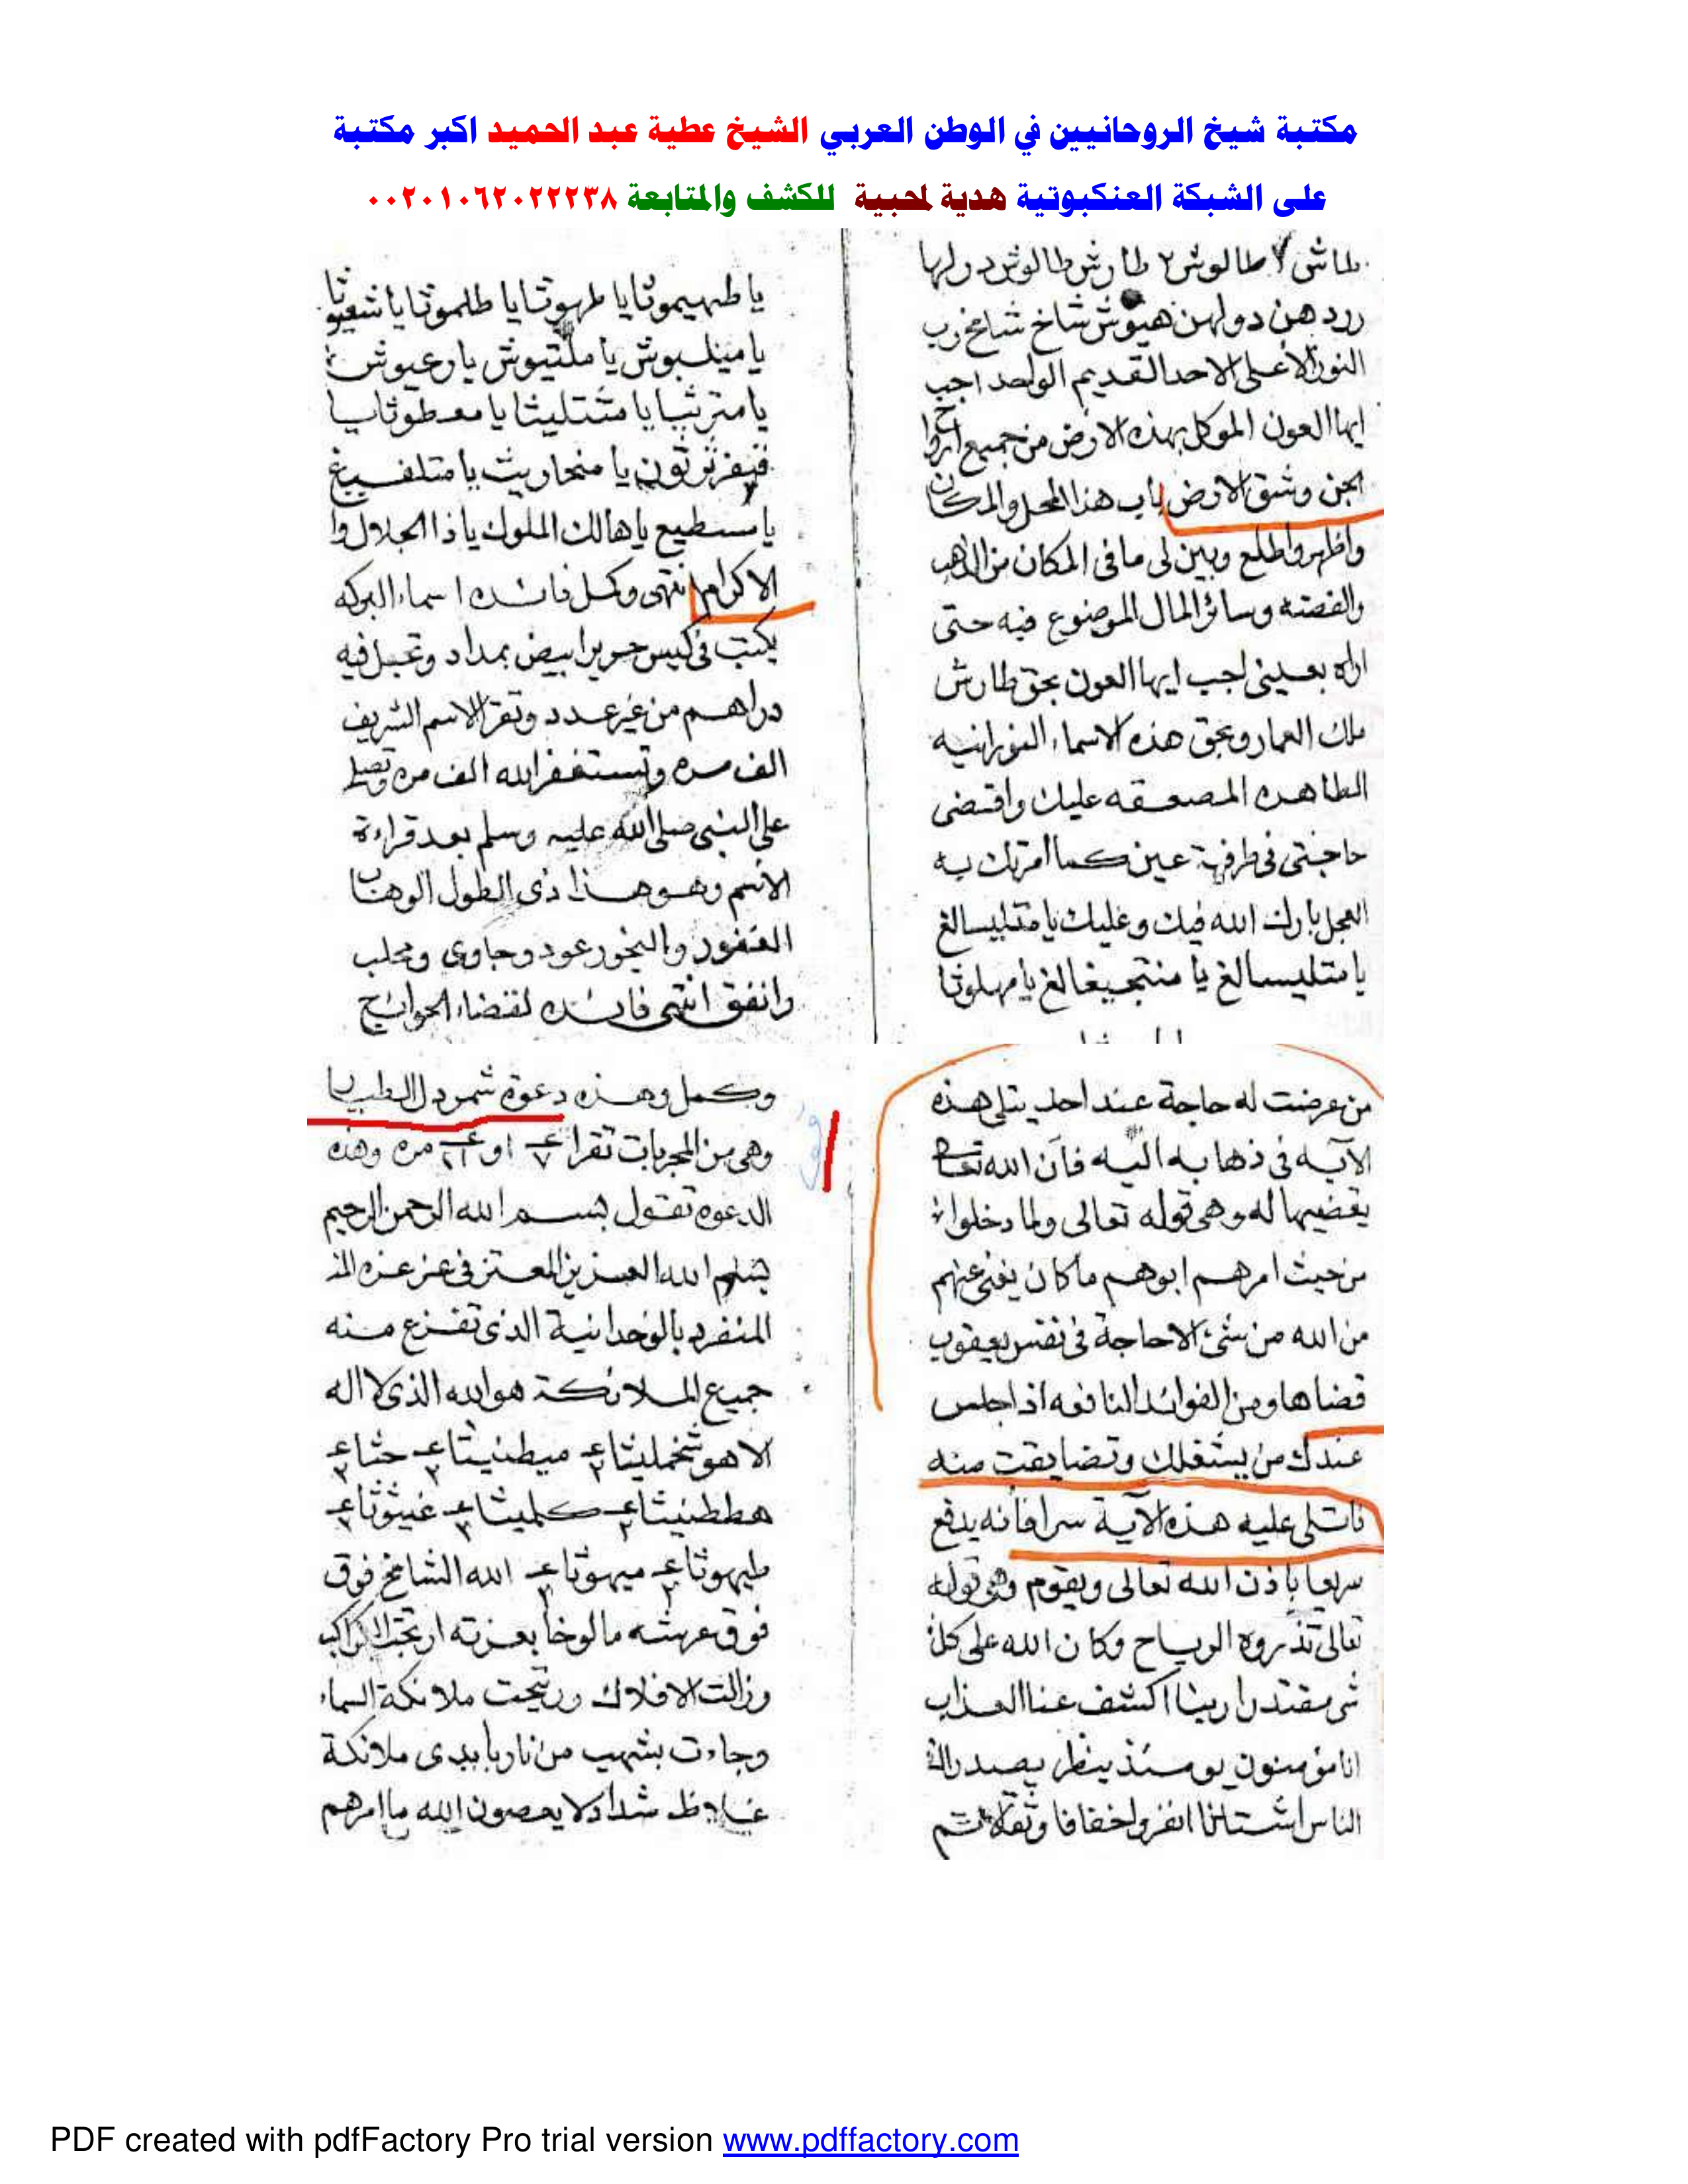 مكتبة شيخ الروحانيين في الوطن العربي الشيخ عطية عبد الحميد اكبر مكتبة
على الشبكة العنكبوتية هدية لمحبية للكشف والمتابعة ٠٠٢٠١٠٦٢٠٢٢٢٣٨
طاش ٢ طالوش ٢ طارش طالوش دولها
ردد هن دولهن هيوش شاخ شامخ رب
النور الاعلى الاحد القديم الواحد اجب
ايها العون الموكل بهذه الارض من جميع
الجن وشق الارض باب هذا المحل والمكان
واظهر واطلع وبين لى ما فى المكان من الذهب
والفضه وسائر المال الموضوع فيه حتى
اراه بعينى اجب ايها العون بحق طارش
ملك العمار وبحق هذه الاسماء النورانيه
الطاهره المصعقه عليك واقضى
حاجتى فى طرفة عين كما امرتك به
العجل بارك الله فيك وعليك يا متليسالغ
يا متليسالغ يا منتجيغالغ يا مهلوثا
يا طهيموثا يا طهوثا يا طلموثا يا
يا مينلبوش يا ملتيوش يا رعيوش
يا مترثبا يا مثتليثا يا معطوثا يا
يا منحاريث يا متلفييغ
يا سطيع يا هالك الملوك يا ذا الجلال وا
الاكرام انتهى وكمل فائده اسماء البركه
يكتب فى كيس حرير ابيض بمداد وتجعل فيه
دراهم من غير عدد وتقرا الاسم الشريف
الف مره وتستغفر الله الف مره وتصلى
على النبى صلى الله عليه وسلم بعد قراءة
الاسم وهو هذا ذى الطول الوهاب
الغفور والبخور عود وجاوى ومحلب
وانفق انتهى فائده لقضاء الحوائج
من عرضت له حاجة عند احد يتلى هذه
الآيه فى ذهابه اليه فان الله تعالى
يقضيها له وهى قوله تعالى ولما دخلوا
من حيث امرهم ابوهم ما كان يغنى عنهم
من الله من شئ الا حاجة فى نفس يعقوب
قضاها ومن الفوائد النافعه اذا جلس
عندك من يستقلك وتضايقت منه
فاتلى عليه هذه الآية سرا فانه يدفع
سريعا باذن الله تعالى ويقوم وهى قوله
تعالى تذروه الرياح وكان الله على كل
شى مقتدرا ربنا اكشف عنا العذاب
انا مؤمنون يومئذ يصدر
الناس اشتاتا انفروا خفافا وثقالا تم
وكمل وهذه دعوة شمردل الطيار
وهى من المجربات تقرا ٧ او ٢١ مره وهذه
الدعوه تقول بسم الله الرحمن الرحيم
بسم الله العزيز المعتز فى عز عزه
المنفرد بالوحدانية الذى تفزع منه
جميع الملائكة هو الله الذى لا اله
الا هو شخمليثا ٢ ميطنيثا ٢ حثا ٢
هططنيثا ٢ كلميثا ٢ غيثوثا ٢
طيهوثا ٢ ميهوثا ٢ الله الشامخ فوق
فوق عرشه مالوخا بعزته ارتجت الكواكب
وزالت الافلاك وتجت ملائكة السماء
وجاءت بشهب من نار بايدى ملائكة
غلاظ شداد لا يعصون الله ما امرهم
PDF created with pdfFactory Pro trial version www.pdffactory.com